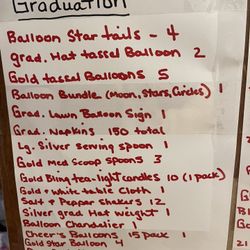 Graduation
Balloon Star tails - 4
grad. Hat tassel Balloon 2
Gold tassel Balloons 5
Balloon Bundle (Moon, Stars, Circles) 1
Grad. Lawn Balloon Sign 1
Grad. Napkins 150 total
Lg. Silver serving spoon 1
Gold Med Scoop spoons 3
Gold Bling tea-light candles 10 (1 pack)
Gold & white table Cloth 1
Salt & Pepper shakers 12
Silver grad Hat weight 1
Balloon Chandelier 1
Cheer's Balloons 15 pack 1
Gold Star Balloon 4